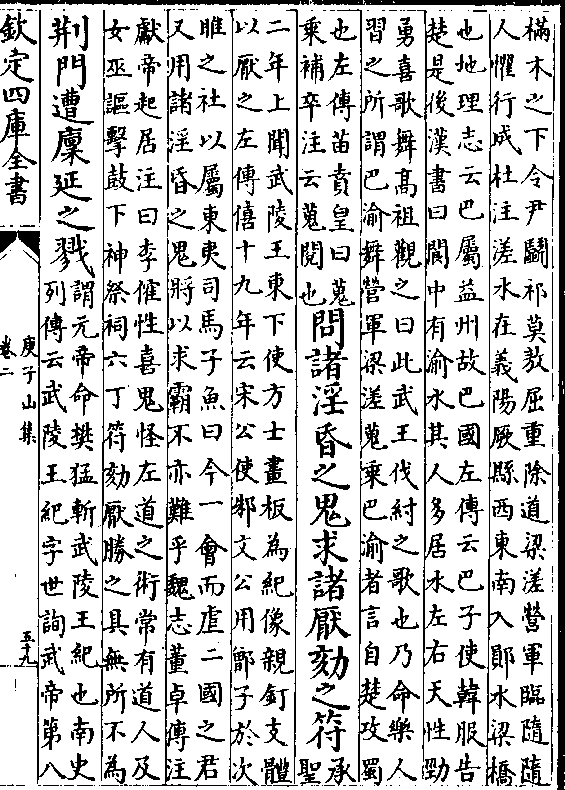 樠木之下令尹鬬祁莫敖屈重除道梁溠營軍臨隨隨
人懼行成杜注溠水在義陽厥縣西東南入鄖水梁橋
也地理志云巴屬益州故巴國左傳云巴子使韓服告
楚是後漢書曰閬中有渝水其人多居水左右天性勁
勇喜歌舞髙祖觀之曰此武王伐紂之歌也乃命樂人
習之所謂巴渝舞營軍梁溠蒐乘巴渝者言自楚攻蜀
也左傳苗賁皇曰蒐
乘補卒注云蒐閱也
問諸淫昏之鬼求諸厭劾之符
承
聖
二年上聞武陵王東下使方士畫板為紀像親釘支體
以厭之左傳僖十九年云宋公使邾文公用鄫子於次
睢之社以屬東夷司馬子魚曰今一會而虐二國之君
又用諸淫昏之鬼將以求霸不亦難乎魏志董卓傳注
獻帝起居注曰李傕性喜鬼怪左道之術常有道人及
女巫謳擊鼓下神祭祠六丁符劾厭勝之具無所不為
荆門遭廩延之戮
謂元帝命樊猛斬武陵王紀也南史
列傳云武陵王紀字世詢武帝第八
欽定四庫全書
庾子山集
卷二
五十九